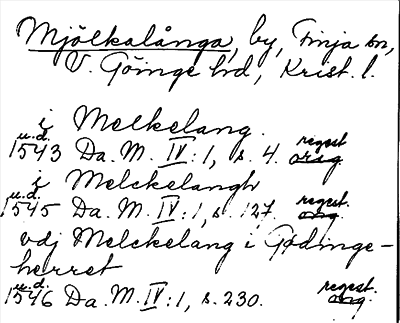 Mjölkalånga, by, Finja sn,
V. Göinge hd, Krist. l.
i Melkelang.
u.d. regest
1543 Da. M. IV:1, s. 4. orig.
i Melckelangh
u.d. regest.
1545 Da. M. IV:1, s. 127. orig.
vdj Melckelang i Gødinge-
herret
u.d. regest.
1546 Da. M. IV:1, s. 230. orig.